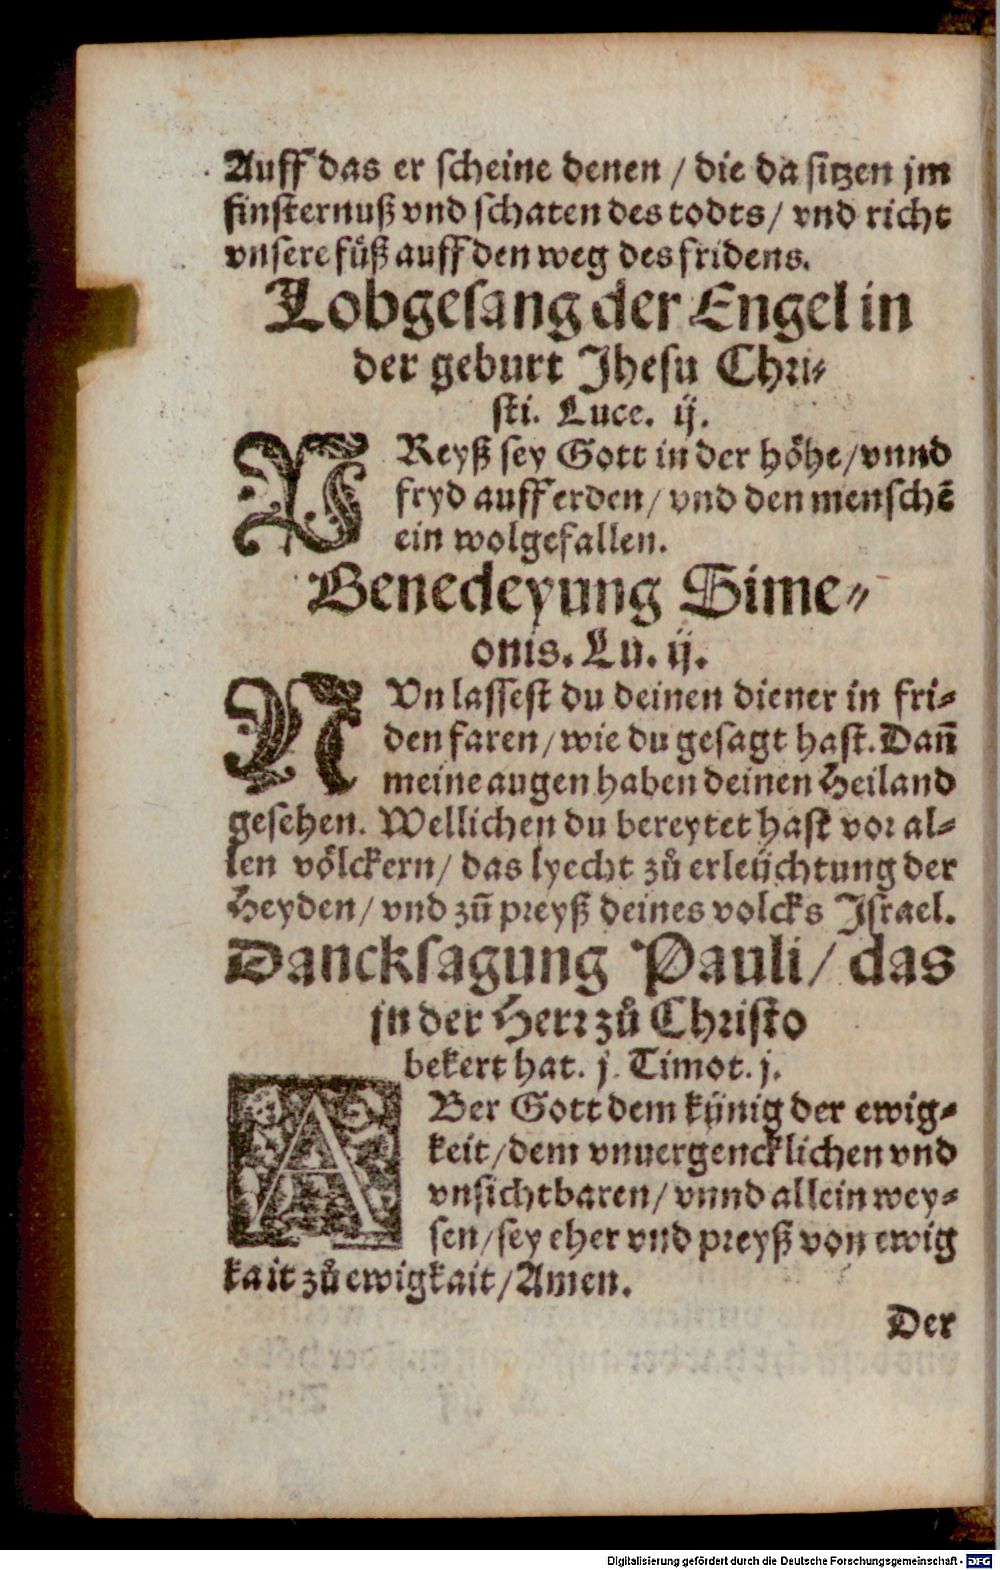 Auff das er scheine denen / die da sitzen jm
finsternuß vnd schaten des todts / vnd richt
vnsere fuͤß auff den weg des fridens.
Lobgesang der Engel in
der geburt Jhesu Chri⸗
sti. Luce. ij.
PReyß sey Gott in der hoͤhe / vnnd
fryd auff erden / vnd den menschē
ein wolgefallen.
Benedeyung Sime⸗
onis. Lu. ij.
NVn lassest du deinen diener in fri⸗
den faren / wie du gesagt hast. Dañ
meine augen haben deinen Heiland
gesehen. Wellichen du bereytet hast vor al⸗
len voͤlckern / das lyecht zuͦ erleüchtung der
Heyden / vnd zū preyß deines volcks Israel.
Dancksagung Pauli / das
jn der Herr zuͦ Christo
bekert hat. j. Timot. j.
ABer Gott dem künig der ewig⸗
keit / dem vnuergencklichen vnd
vnsichtbaren / vnnd allein wey⸗
sen / sey eher vnd preyß von ewig
kait zuͦ ewigkait / Amen.
Der
Digitalisierung gefördert durch die Deutsche Forschungsgemeinschaft - DFG